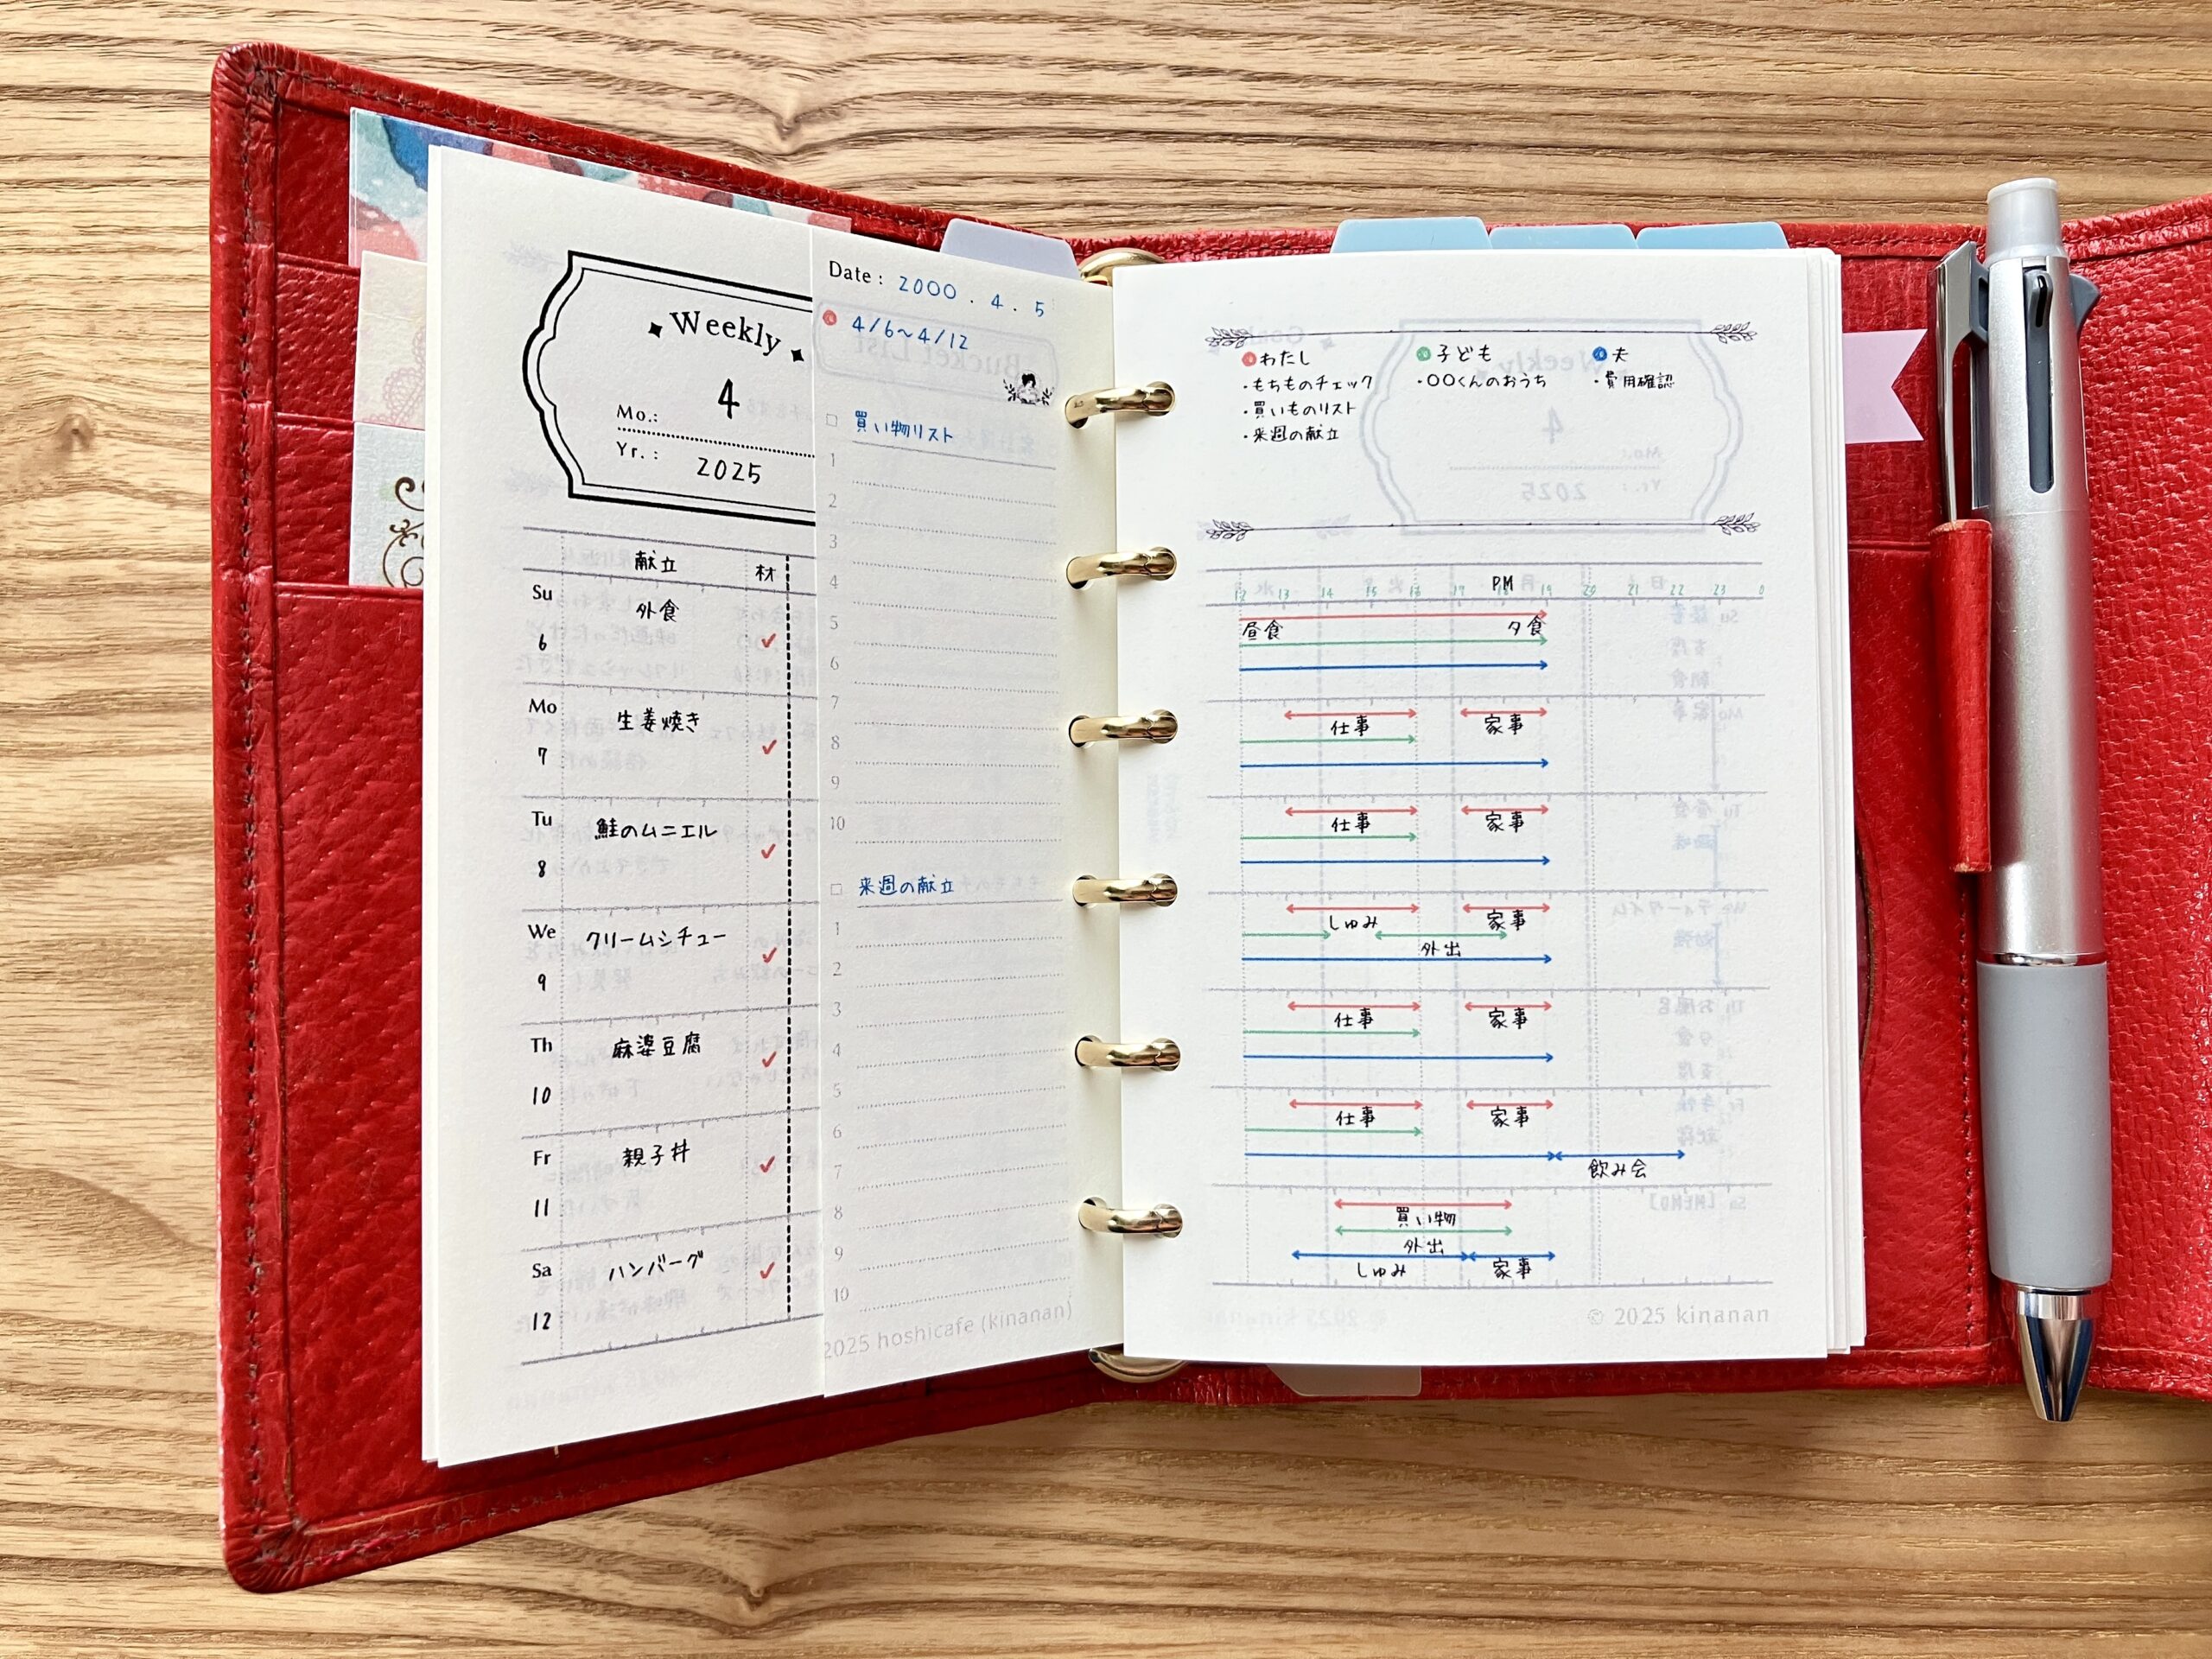 Weekly
Mo.: 4
Yr.: 2025
献立 材
Su
外食
6
Mo
生姜焼き
7
Tu
鮭のムニエル
8
We
クリームシチュー
9
Th
麻婆豆腐
10
Fr
親子丼
11
Sa
ハンバーグ
12
Date: 2000. 4. 5
4/6~4/12
買い物リスト
1
2
3
4
5
6
7
8
9
10
来週の献立
1
2
3
4
5
6
7
8
9
10
2025 hoshicafe (kinanan)
わたし 子ども 夫
・もちものチェック ・〇〇くんのおうち ・費用確認
・買いものリスト
・来週の献立
PM
12 13 14 15 16 17 18 19 20 21 22 23 0
昼食 夕食
仕事 家事
仕事 家事
しゅみ 家事
外出
仕事 家事
仕事 家事
飲み会
買い物
外出
しゅみ 家事
© 2025 kinanan